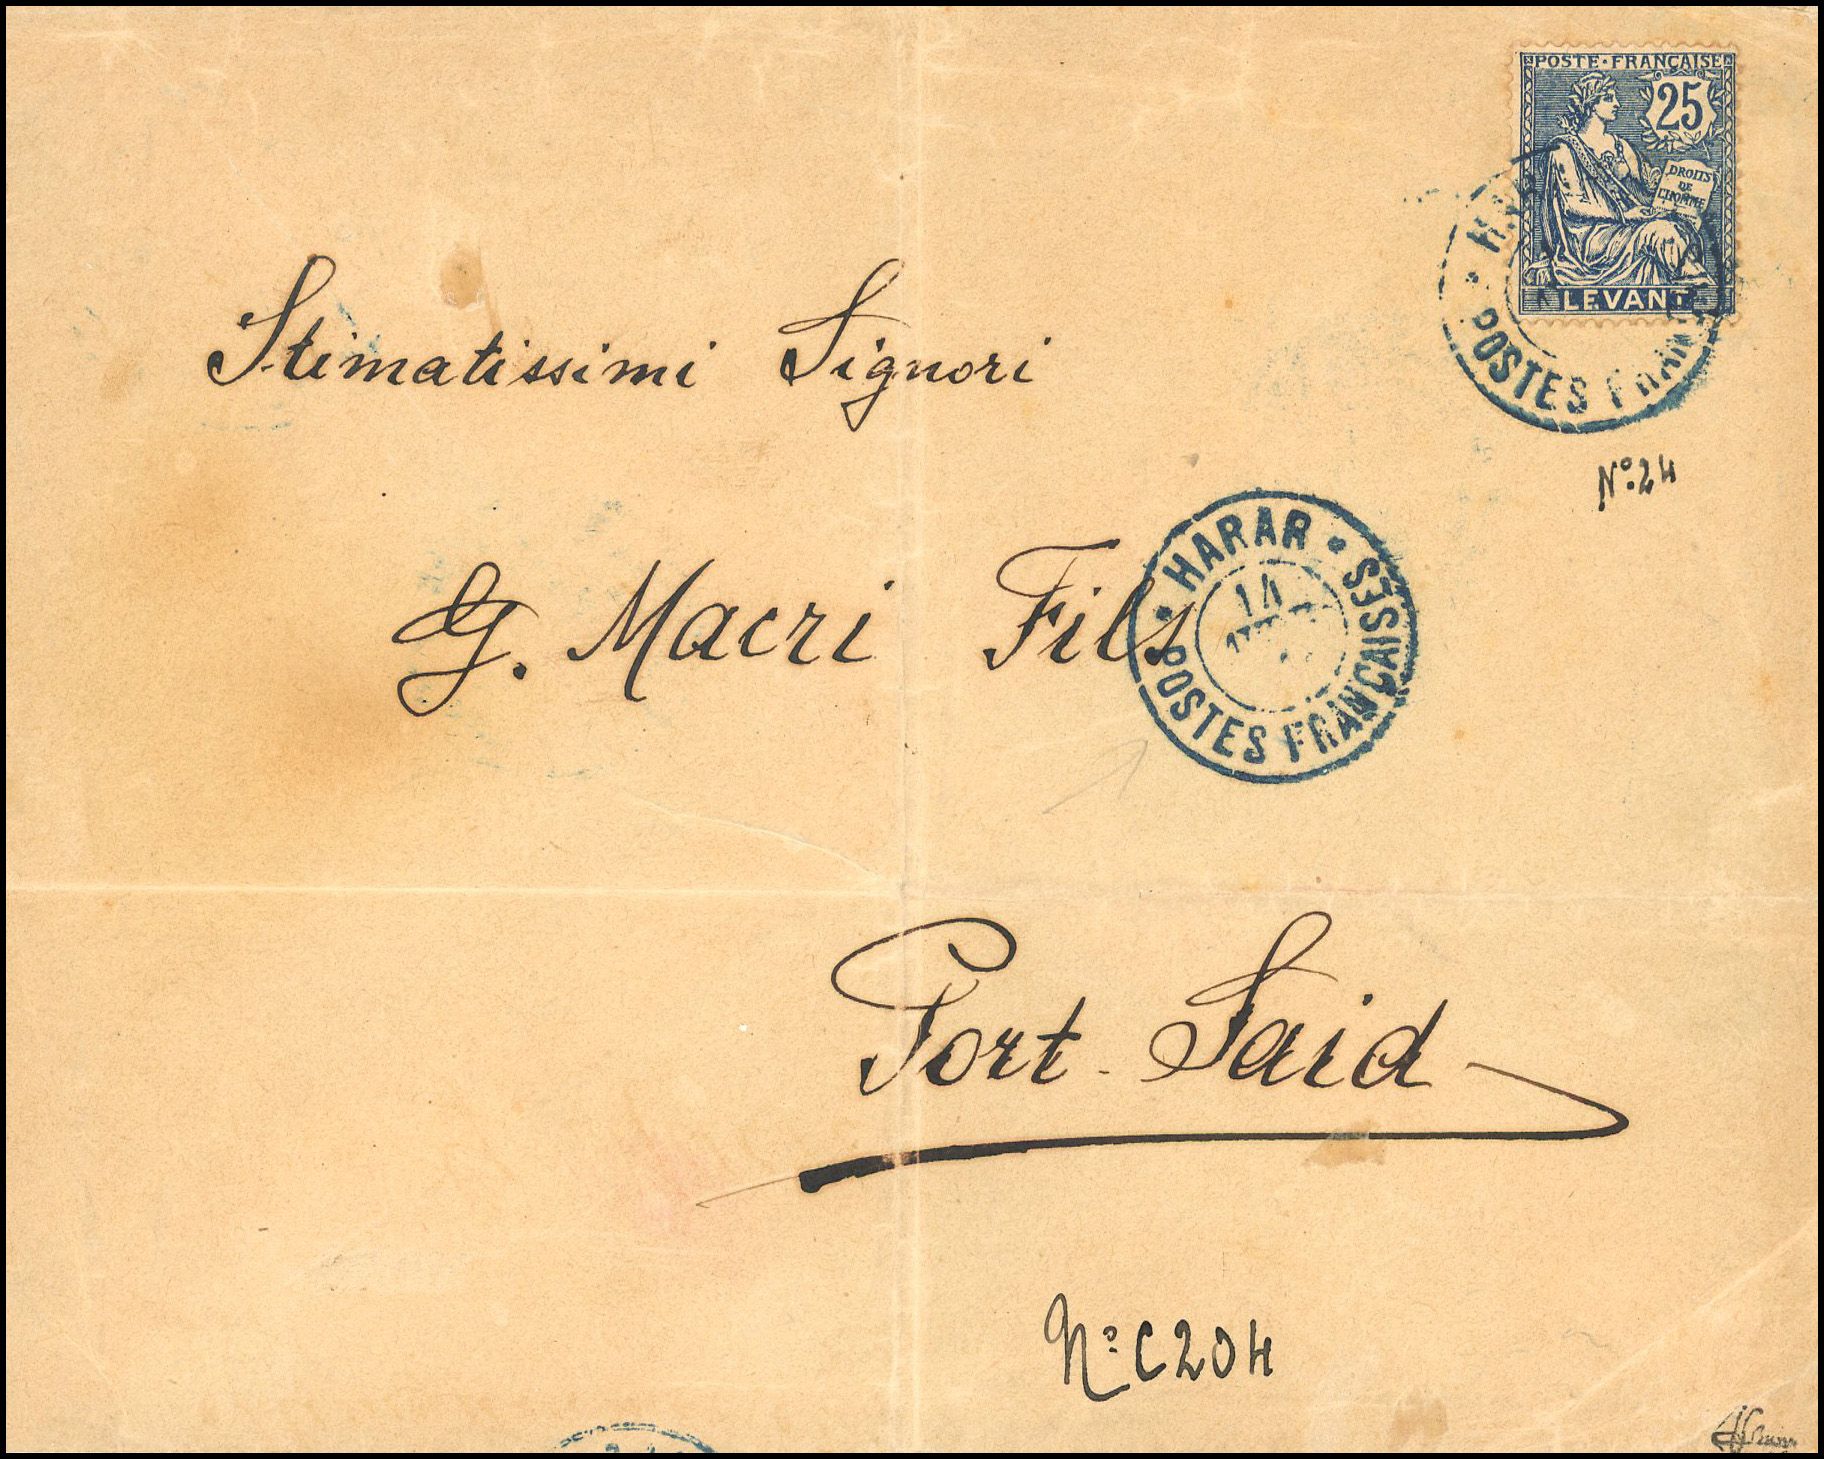 POSTE FRANÇAISE
25
DROITS
DE
L'HOMME
LEVANT
POSTES FRAN
Stimatissimi Signori
Nº. 24
HARAR
14
POSTES FRANÇAISES
G. Macri Fils
Port-Said
Nº: C204